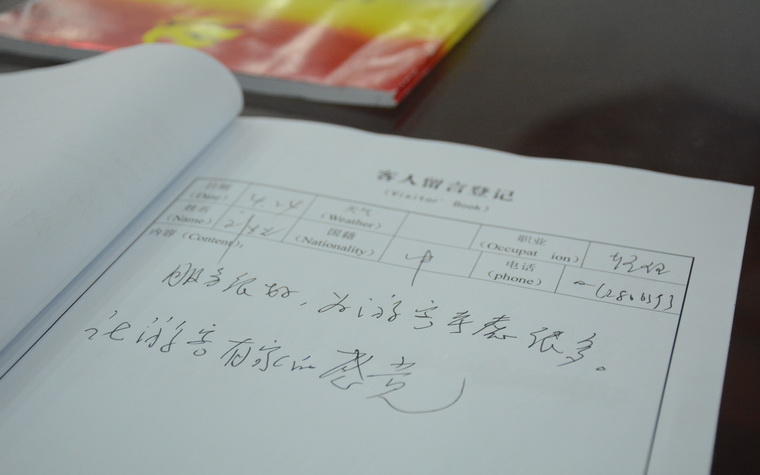 客人留言登记
(Visitor' Book)
日期 (Date) 4.24 天气 (Weather) 职业 (Occupat ion) 经理
姓名 (Name) 国籍 (Nationality) 中 电话 (phone)
内容 (Content):
服务很好，为游客考虑很多。
让游客有家的感觉